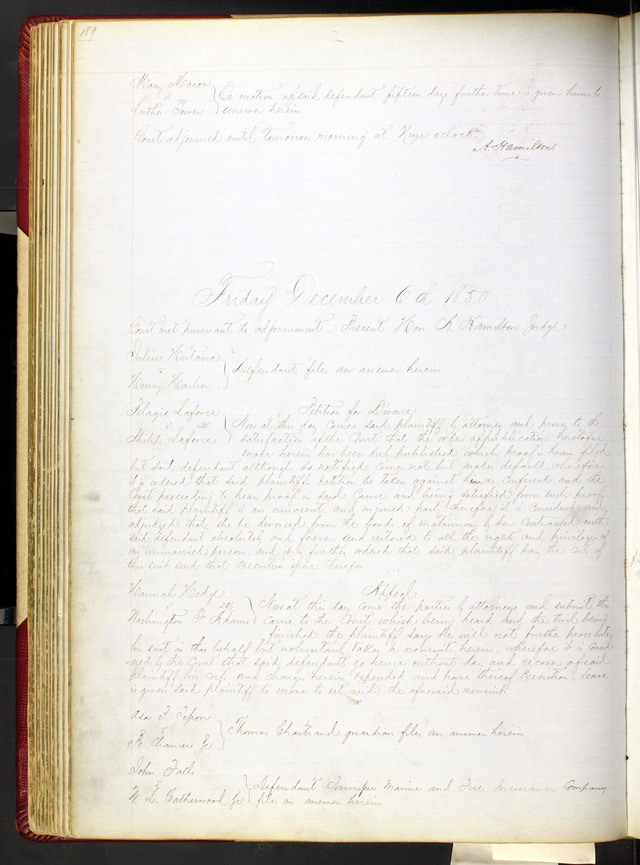 189
Mary Mason
On motion of said defendant fifteen days further time is given him to
Luther Tower answer herein
Court adjourned until tomorrow morning at Nine oclock
A. Hamilton
Friday December 6th 1850
Court met pursuant to adjournment. Present Hon A. Hamilton Judge
Defendant files an answer herein
Henry
Pelagie Laforce Petition for Divorce
Now at this day comes said plaintiff by attorney and proves to the
Philip Laforce satisfaction of the Court that the order of publication heretofore
made herein has been duly published which proof is herein filed
but said defendant although so notified comes not but makes default wherefore
it is ordered that said plaintiffs petition be taken against him as confessed and the
Court proceeding to hear proof in said cause and being satisfied from such proof
that said plaintiff is an innocent and injured party therefore it is considered and
adjudged that she be divorced from the bonds of matrimony by her contracted with
said defendant absolutely and forever and restored to all the rights and privileges of
an unmarried person and it is further ordered that said plaintiff pay the costs of
this suit and that execution issue therefor
Hannah Hedge Appeal
29 Now at this day come the parties by attorneys and submit this
Washington F Adams cause to the Court which being heard and the trial being
finished the plaintiff says he will not further prosecute
his suit in this behalf but voluntarily takes a nonsuit herein, wherefore it is consid
-ered by the Court that said defendant go hence without day and recover of said
plaintiff his costs and charges herein expended and have thereof Execution, Leave
is given said plaintiff to move to set aside the aforesaid nonsuit
Asa
Thomas Chartrand guardian files an answer herein
John Falls
Defendant Juniper Marine and Fire Insurance Company
W. L. Catherwood file an answer herein